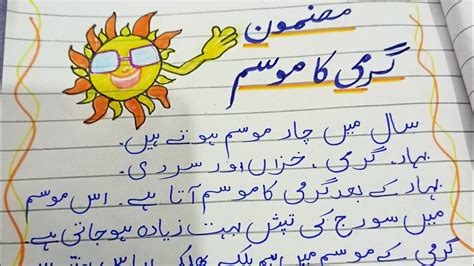 مضمون
گرمی کا موسم
سال میں چار موسم ہوتے ہیں۔
بہار، گرمی، خزاں اور سردی۔
بہار کے بعد گرمی کا موسم آتا ہے۔ اس موسم
میں سورج کی تپش بہت زیادہ ہو جاتی ہے۔
گرمی کے موسم میں ہم ہلکے پھلکے